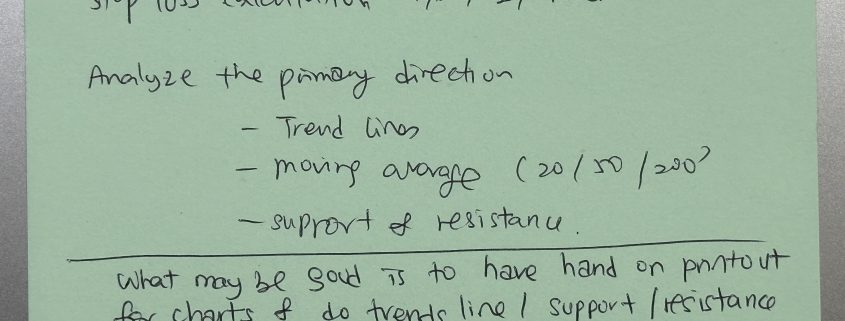 stop loss calculation
Analyze the primary direction
- Trend lines
- moving average (20/50/200)
- support & resistance.
What may be good is to have hand on printout
for charts & do trends line / support / resistance